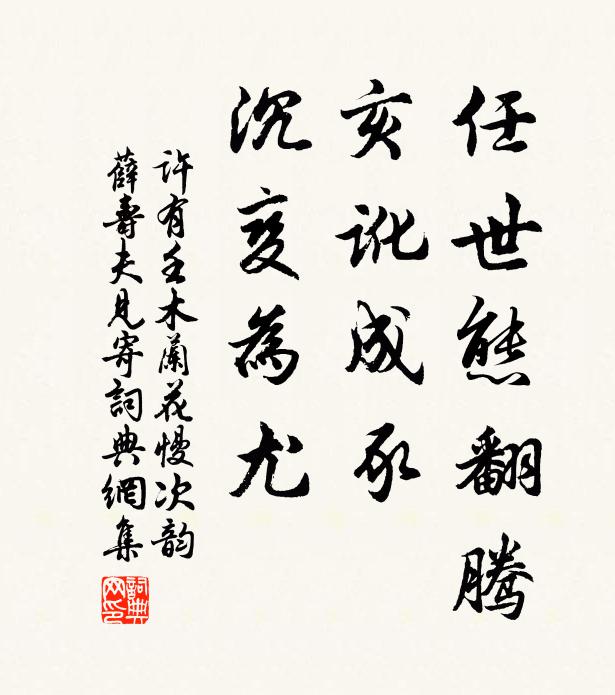 任世態翻騰
亥訛成豕
沉變為尤
許有壬木蘭花慢次韵
薛壽夫見寄詞典網集
詞典網印